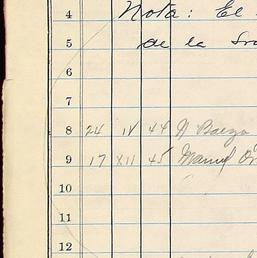 4 Nota: El
5 de la Sra
6
7
8 24 IV 44 N Baeza
9 17 XII 45 Manuel Or
10
11
12